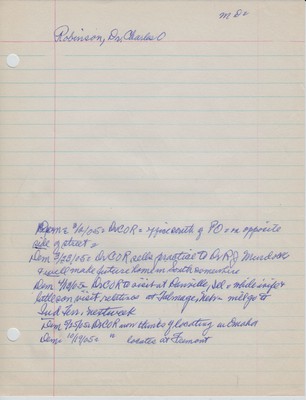 M D's
Robinson, Dr. Charles O
Dem = 3/16/05 = Dr COR = office north of PO on opposite
side of street =
Dem 3/30/05 = Dr COR sells practice to Dr RJ Murdock
& will make future home in South somewhere
Dem 4/13/05 Dr COR to visit at Danville, Ill & while wife &
little son visit relatives at Talmage, Nebr will go to
Ind Terr. next week
Dem 9/5/05 = Dr COR now thinks of locating in Omaha
Dem = 10/19/05 = " locates at Fremont